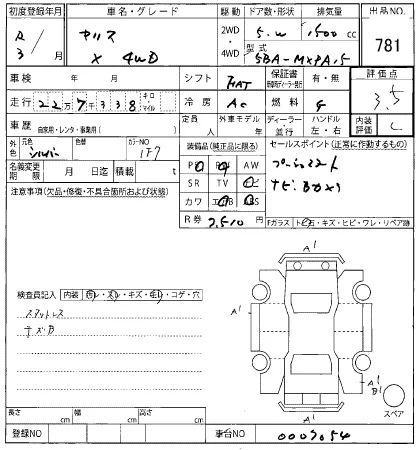 初度登録年月 車名・グレード 駆動 ドア数・形状 排気量 出品NO.
R 3/月 ヤリス X 4WD 2WD・4WD 5.W 1500 cc 781
型式 5BA-MXPA15
車検 年 月 シフト FAT 保証書 有・無 評価点
走行 22万7千338 キロ・マイル 冷房 AC 燃料 G 3.5
車歴 自家用・レンタ・事業用( ) 定員 人 外車モデル 年 ディーラー・並行 ハンドル 左・右 内装評価 C
外色 元色 シルバー 色替 カラーNO 1F7 装備品(純正品に限る) セールスポイント(正常に作動するもの)
PS PW AW プッシュスタート
名義変更期限 月 日迄 積載 t SR TV ナビ ナビ Bカメラ
注意事項(欠品・修復・不具合箇所および状態) カワ エアB ABS
R券 7,510 Fガラス トビ石・キズ・ヒビ・ワレ・リペア跡
A1
検査員記入 内装 汚レ・スレ・キズ・破レ・コゲ・穴
スマートレス
キズB
A1
A1
A1
B1
スペア
A1
長さ cm 幅 cm 高さ cm
登録NO 車台NO 0007054